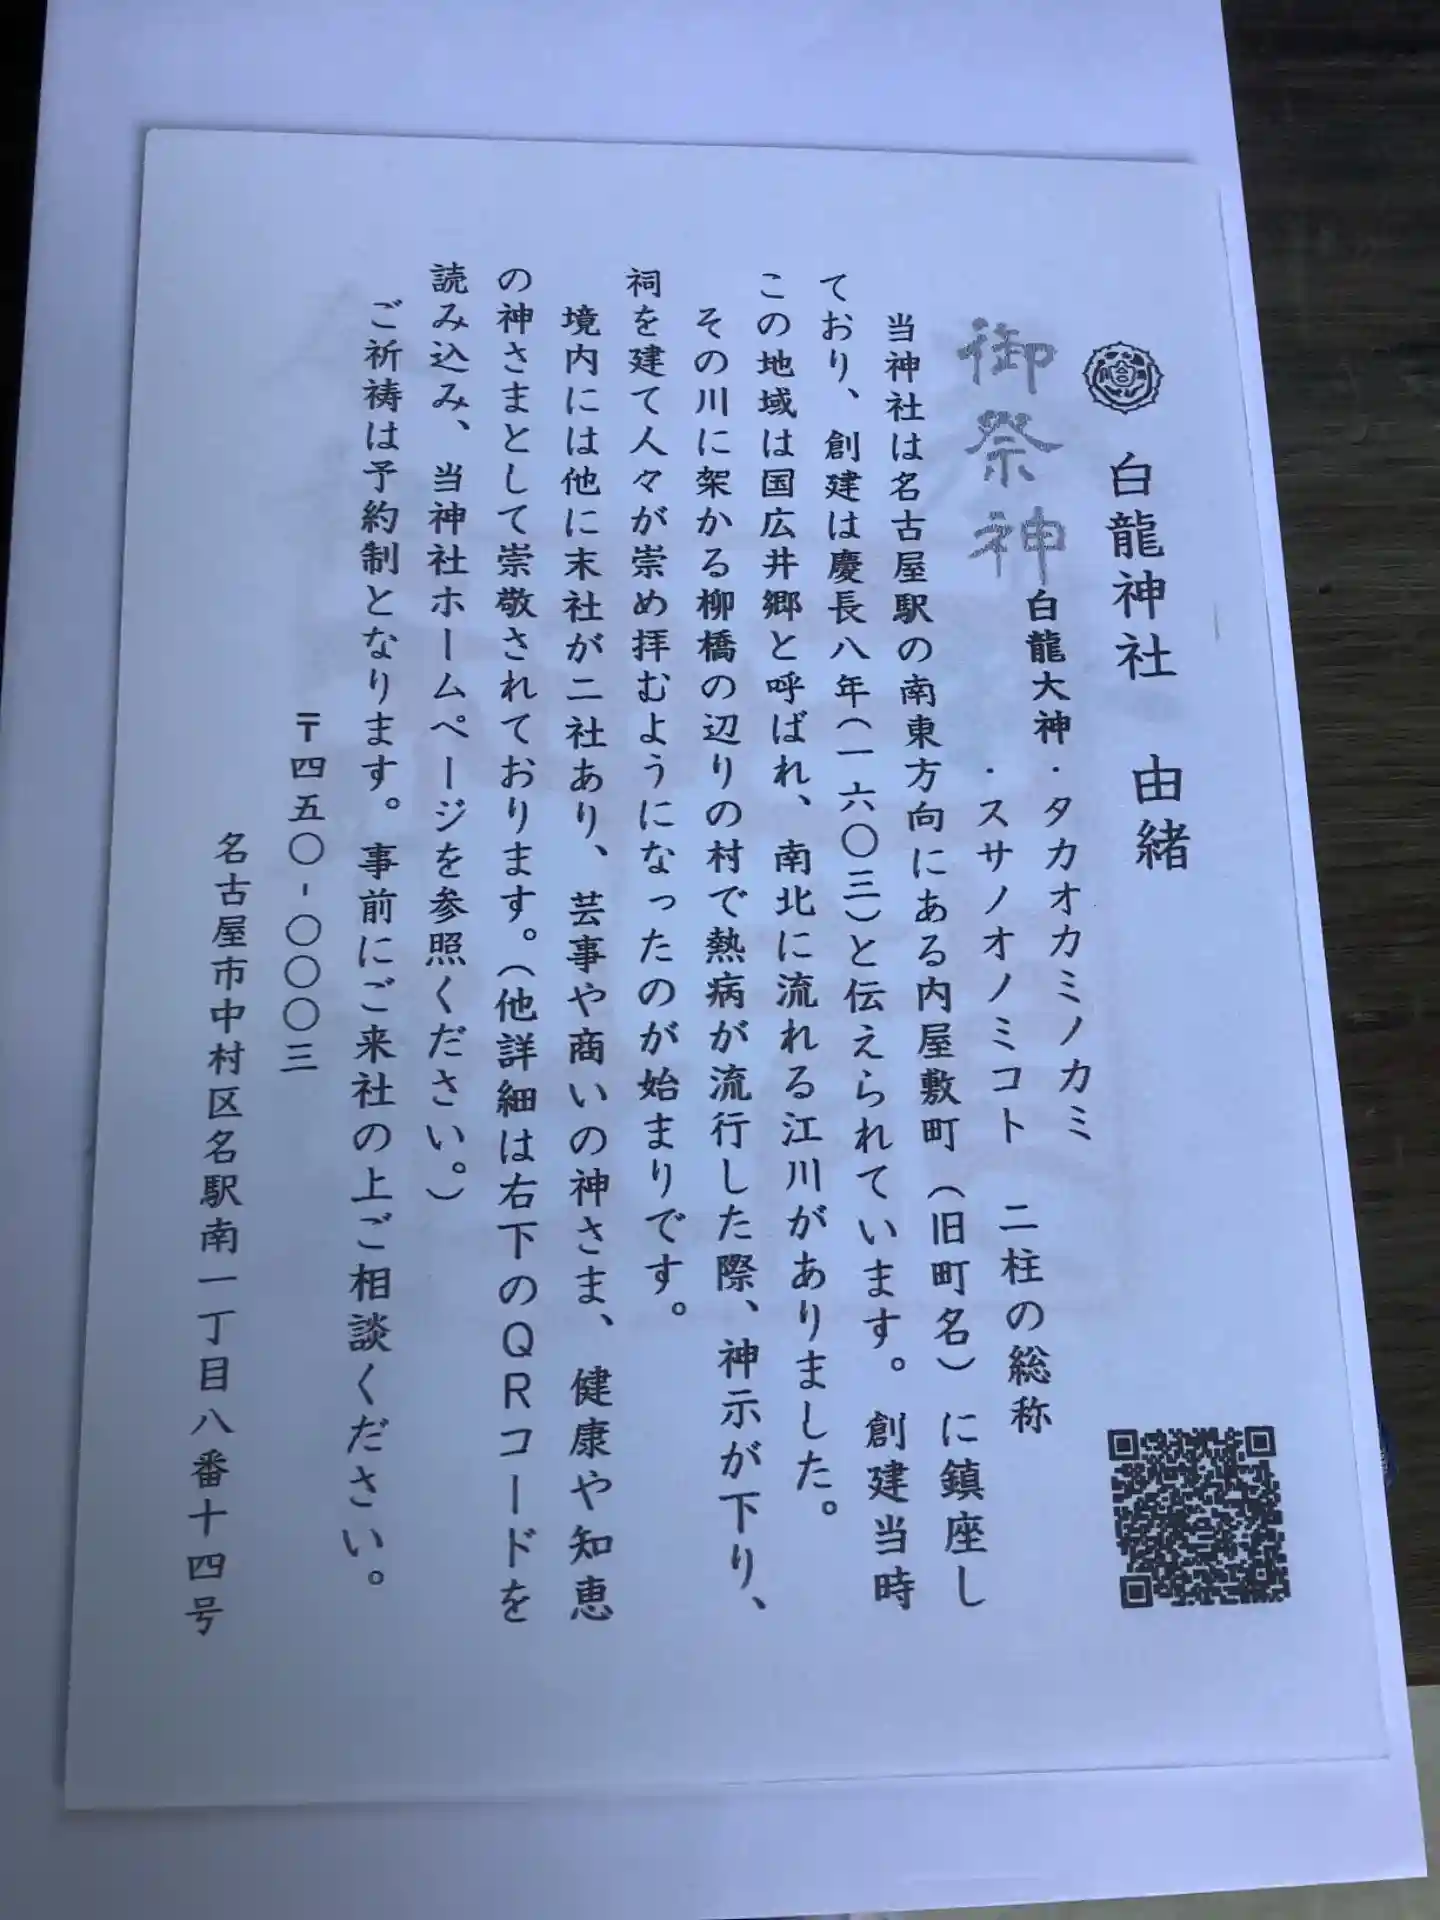 白龍神社 由緒
御祭神
白龍大神・タカオカミノカミ
・スサノオノミコト 二柱の総称
当神社は名古屋駅の南東方向にある内屋敷町(旧町名)に鎮座し
ており、創建は慶長八年(一六〇三)と伝えられています。創建当時
この地域は国広井郷と呼ばれ、南北に流れる江川がありました。
その川に架かる柳橋の辺りの村で熱病が流行した際、神示が下り、
祠を建て人々が崇め拝むようになったのが始まりです。
境内には他に末社が二社あり、芸事や商いの神さま、健康や知恵
の神さまとして崇敬されております。(他詳細は右下のQRコードを
読み込み、当神社ホームページを参照ください。)
ご祈祷は予約制となります。事前にご来社の上ご相談ください。
〒四五〇-〇〇〇三
名古屋市中村区名駅南一丁目八番十四号